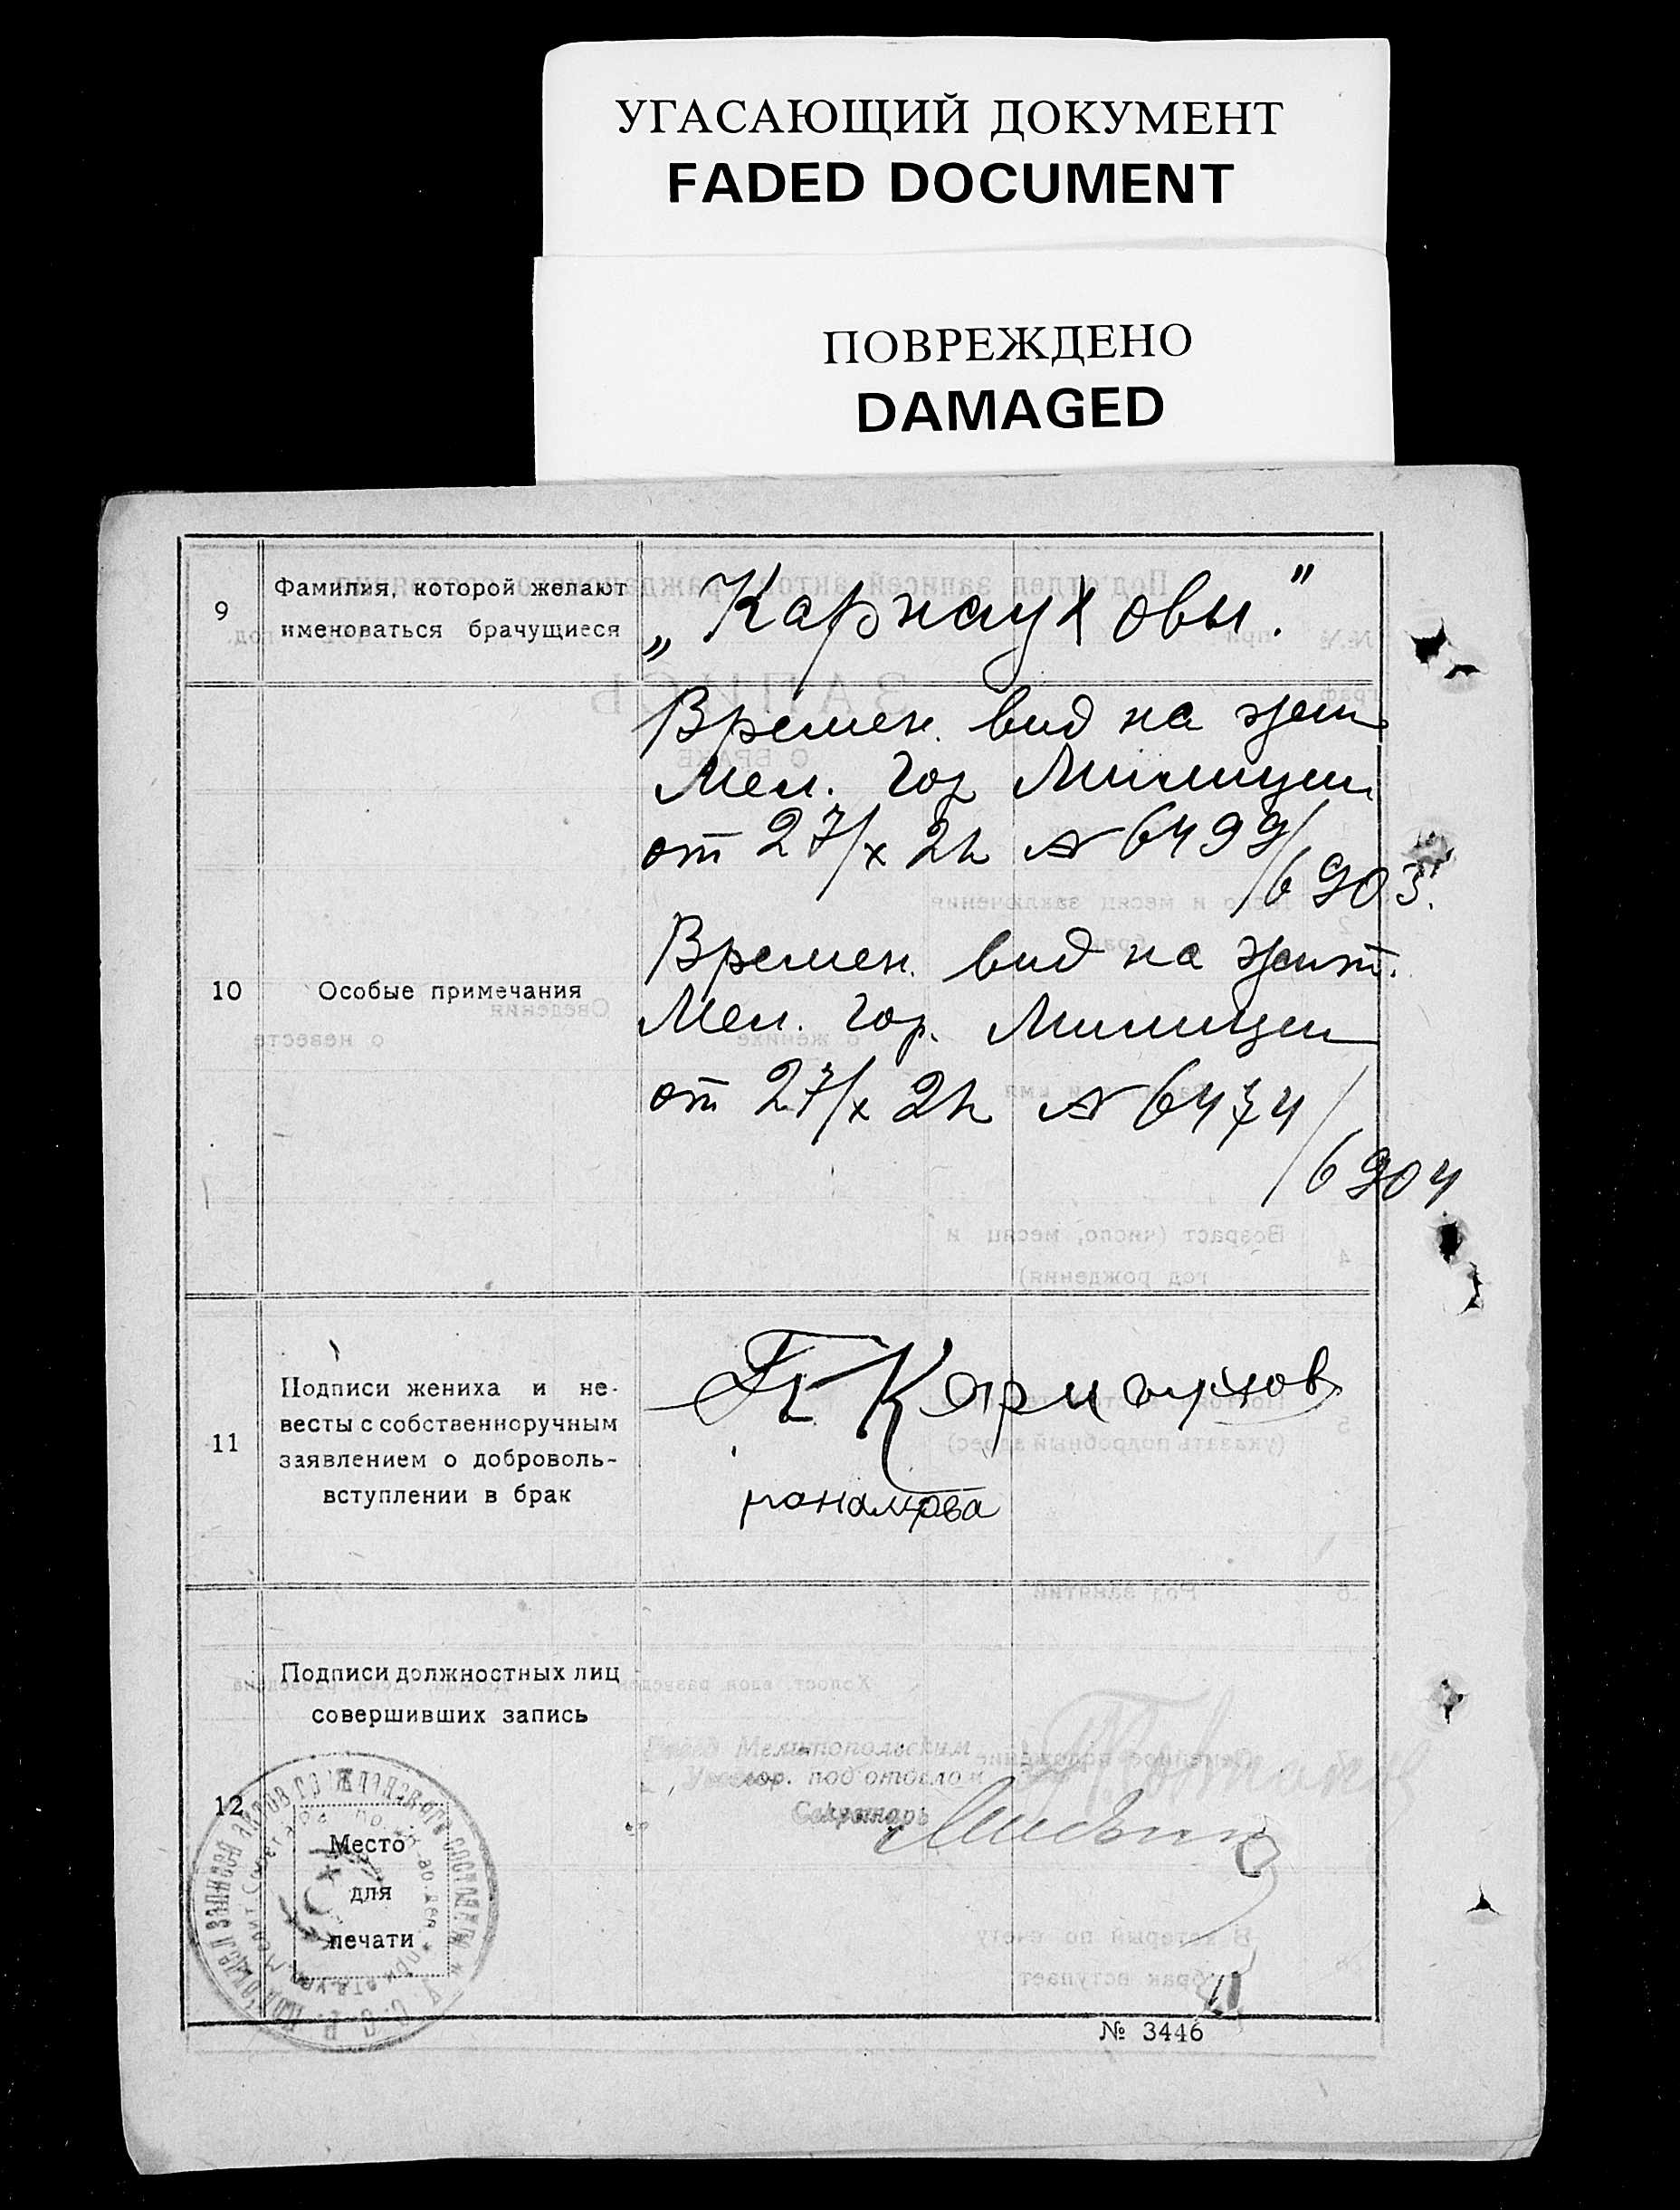 УГАСАЮЩИЙ ДОКУМЕНТ
FADED DOCUMENT
ПОВРЕЖДЕНО
DAMAGED
9
Фамилия, которой желают
именоваться брачущиеся
„Карнауховы."
10
Особые примечания
Времен. вид на жит
Мел. гор Милиции
от 27/х 2
№ 6499/
/6903.
Времен. вид на жит.
Мел. гор. Милиции
от 27/х 2
№ 6474/
/6904
11
Подписи жениха и не-
весты с собственноручным
заявлением о доброволь-
вступлении в брак
Карнаухов
12
Подписи должностных лиц
совершивших запись
Мелитопольским
гор. под отделом
Секретарь
Место
для
печати
№ 3446